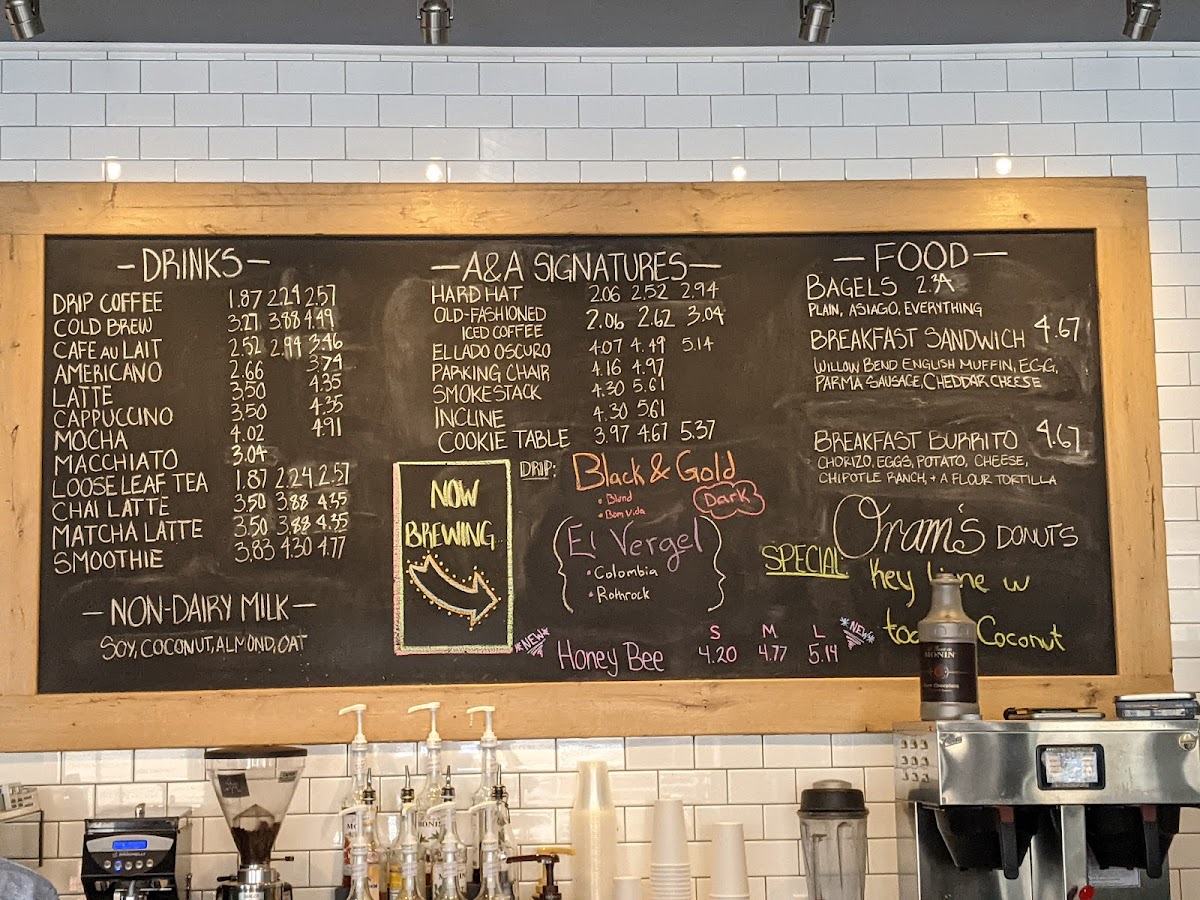 -DRINKS-
DRIP COFFEE 1.87 2.24 2.57
COLD BREW 3.27 3.88 4.49
CAFE AU LAIT 2.52 2.99 3.46
AMERICANO 2.66 3.74
LATTE 3.50 4.35
CAPPUCCINO 3.50 4.35
MOCHA 4.02 4.91
MACCHIATO 3.04
LOOSE LEAF TEA 1.87 2.24 2.57
CHAI LATTE 3.50 3.88 4.35
MATCHA LATTE 3.50 3.88 4.35
SMOOTHIE 3.83 4.30 4.77
-NON-DAIRY MILK-
SOY, COCONUT, ALMOND, OAT
-A&A SIGNATURES-
HARD HAT 2.06 2.52 2.94
OLD-FASHIONED
ICED COFFEE 2.06 2.62 3.04
EL LADO OSCURO 4.07 4.49 5.14
PARKING CHAIR 4.16 4.97
SMOKESTACK 4.30 5.61
INCLINE 4.30 5.61
COOKIE TABLE 3.97 4.67 5.37
NOW
BREWING
DRIP: Black & Gold
• Blend
• Bom Vida
Dark
El Vergel
• Colombia
• Rothrock
*NEW* Honey Bee
S M L
4.20 4.77 5.14
*NEW*
-FOOD-
BAGELS 2.34
PLAIN, ASIAGO, EVERYTHING
BREAKFAST SANDWICH 4.67
WILLOW BEND ENGLISH MUFFIN, EGG,
PARMA SAUSAGE, CHEDDAR CHEESE
BREAKFAST BURRITO 4.67
CHORIZO, EGGS, POTATO, CHEESE,
CHIPOTLE RANCH, + A FLOUR TORTILLA
Oram's DONUTS
SPECIAL Key lime w
Coconut
MONIN